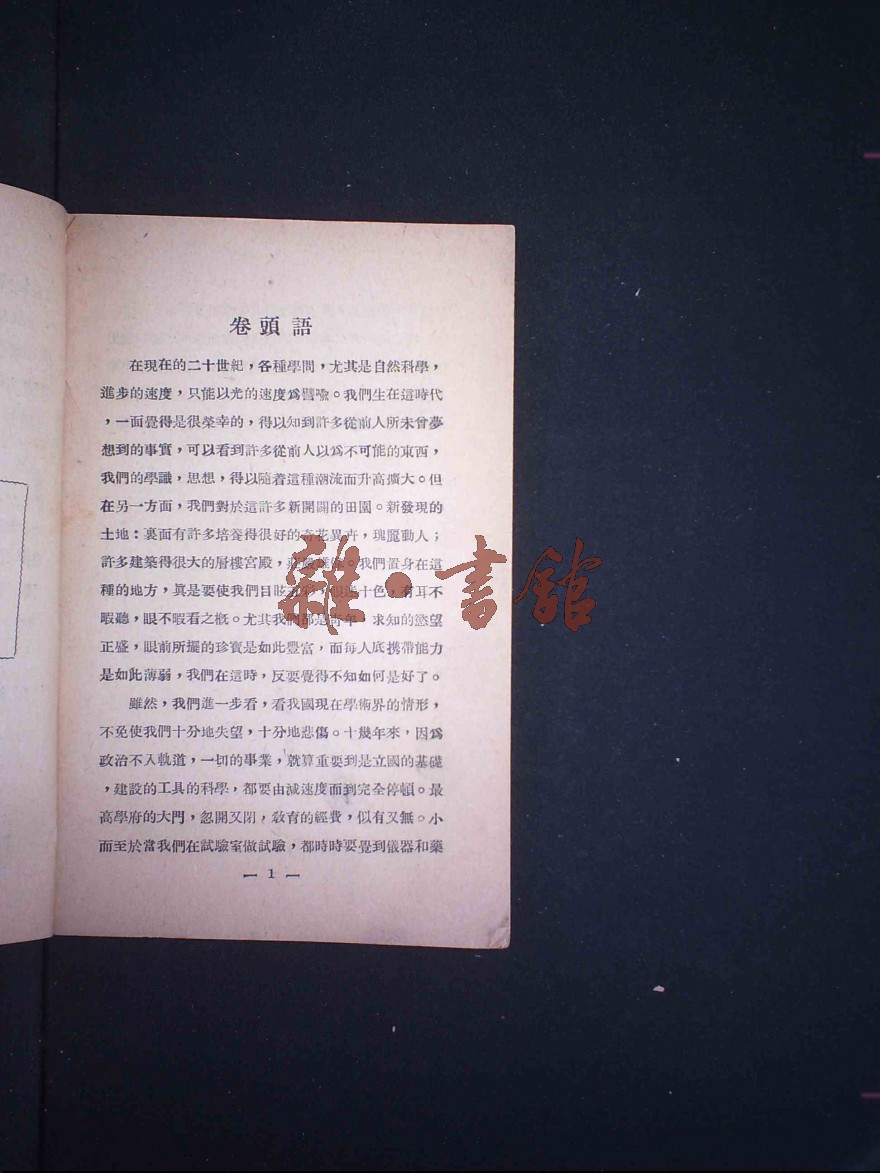 卷頭語
在現在的二十世紀，各種學問，尤其是自然科學，
進步的速度，只能以光的速度爲譬喩。我們生在這時代
，一面覺得是很榮幸的，得以知到許多從前人所未曾夢
想到的事實，可以看到許多從前人以爲不可能的東西，
我們的學識，思想，得以隨着這種潮流而升高擴大。但
在另一方面，我們對於這許多新開闢的田園。新發現的
土地：裏面有許多培養得很好的奇花異卉，瑰麗動人；
許多建築得很大的層樓宮殿，莊嚴雄偉。我們置身在這
種的地方，眞是要使我們目眩五彩，十色，有耳不
暇聽，眼不暇看之槪。尤其我們都是靑年，求知的慾望
正盛，眼前所擺的珍寶是如此豐富，而每人底携帶能力
是如此薄弱，我們在這時，反要覺得不知如何是好了。
雖然，我們進一步看，看我國現在學術界的情形，
不免使我們十分地失望，十分地悲傷。十幾年來，因爲
政治不入軌道，一切的事業，就算重要到是立國的基礎
，建設的工具的科學，都要由減速度而到完全停頓。最
高學府的大門，忽開又閉，敎育的經費，似有又無。小
而至於當我們在試驗室做試驗，都時時要覺到儀器和藥
— 1 —
雜·書館